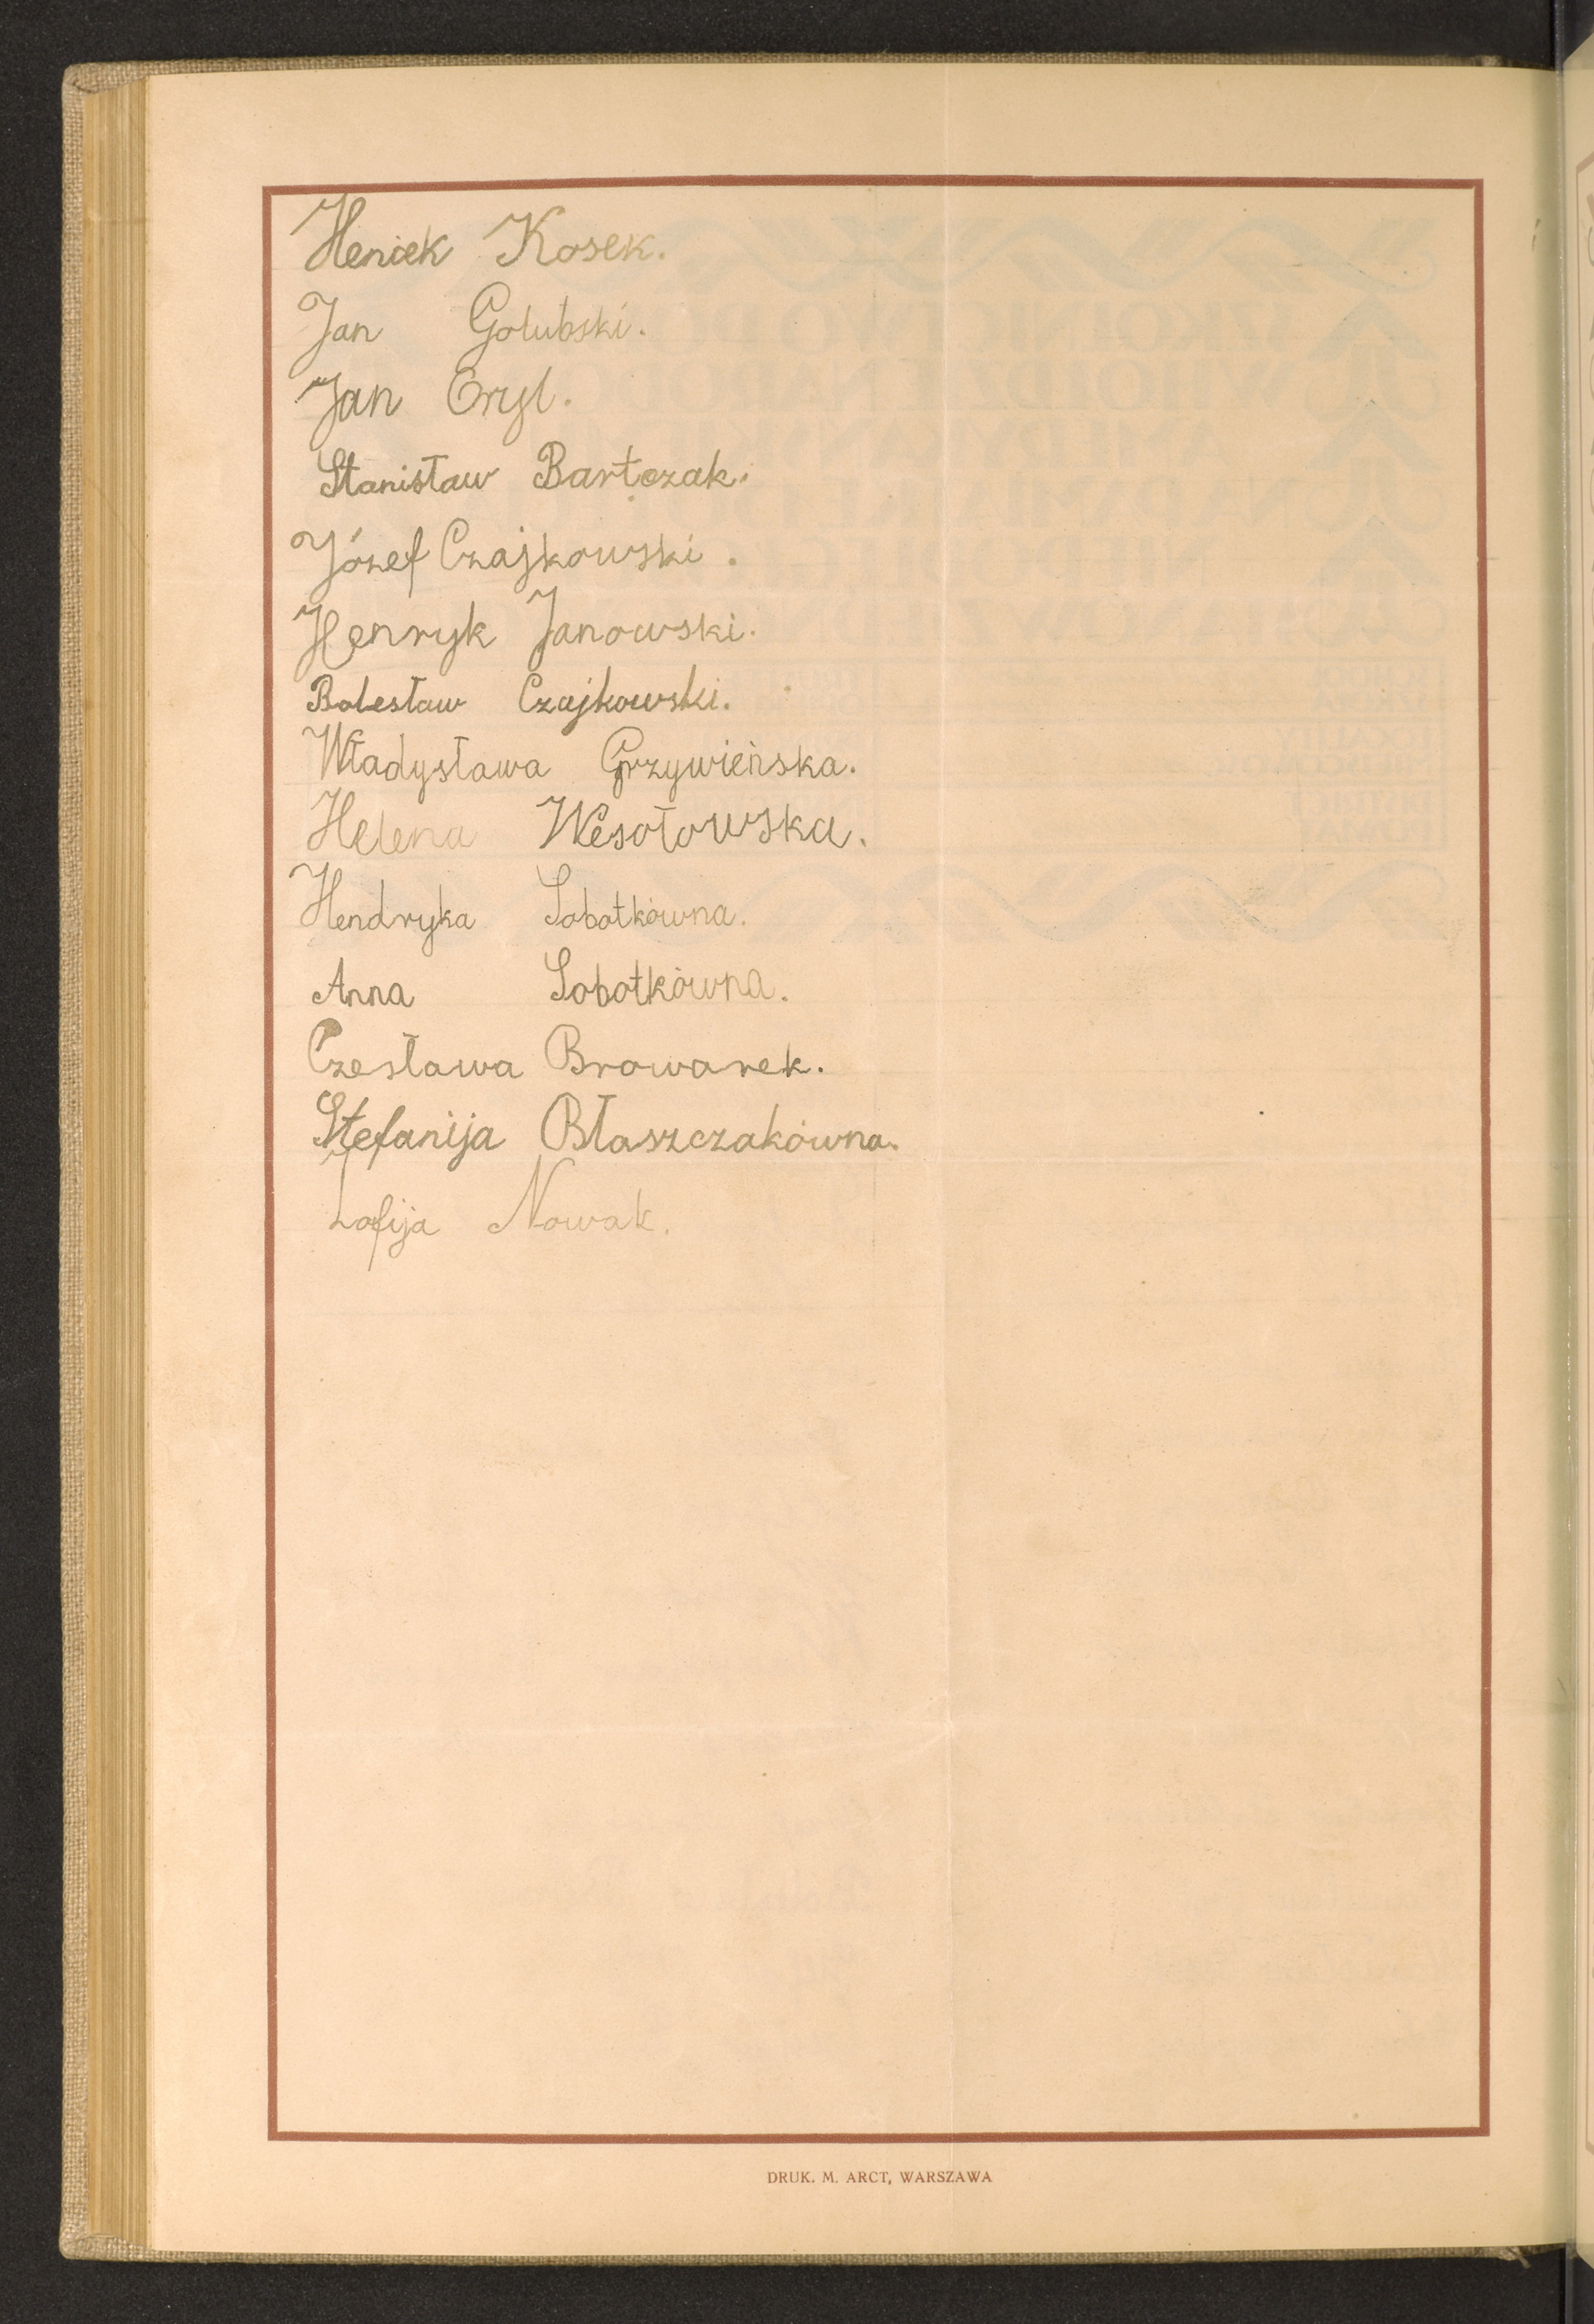 Heniek Kosek.
Jan Gołubski.
Jan Oryl.
Stanisław Bartczak.
Józef Czajkowski.
Henryk Janowski.
Bolesław Czajkowski.
Władysława Grzywieńska.
Helena Wesołowska.
Hendryka Sobotkówna.
Anna Sobotkówna.
Czesława Browarek.
Stefanija Błaszczakówna.
Zofija Nowak.
DRUK. M. ARCT, WARSZAWA